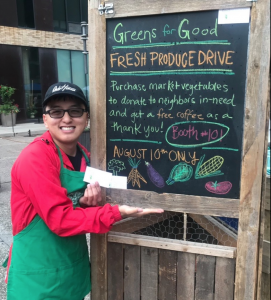 Greens for Good
FRESH PRODUCE DRIVE
Purchase market vegetables
to donate to neighbors in-need
and get a free coffee as a
thank you!
Booth #101
AUGUST 10th ONLY